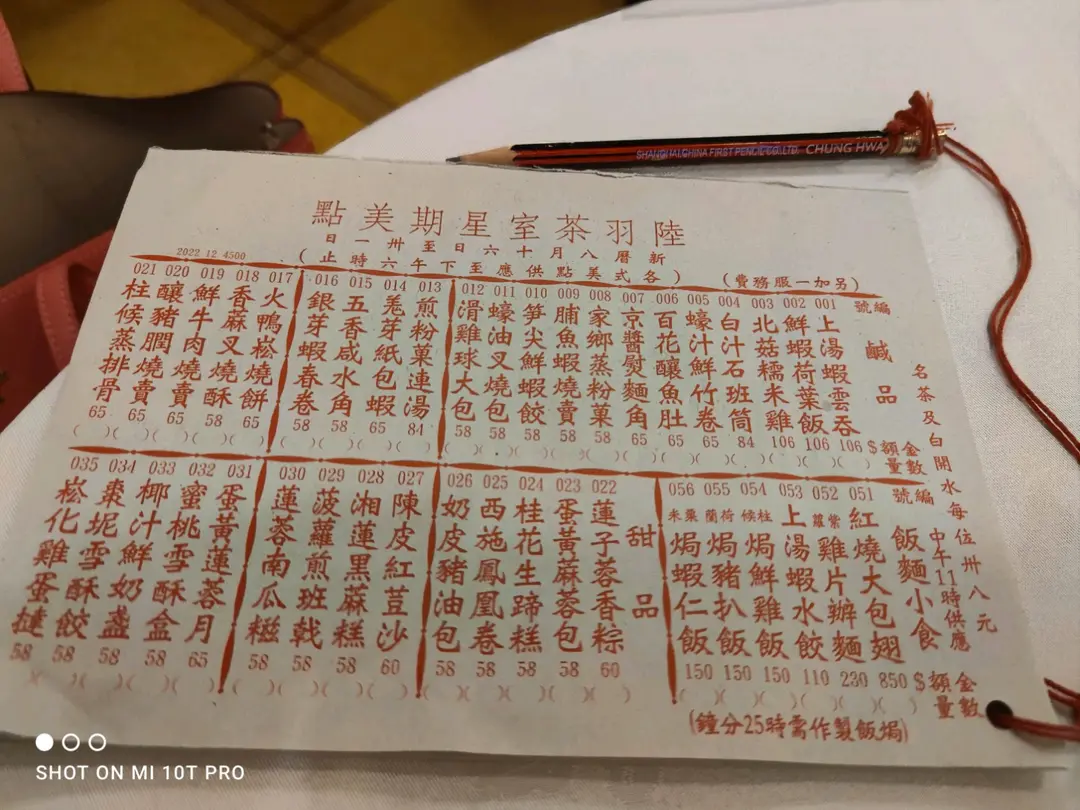 陸羽茶室星期美點
新曆八月十六日至卅一日
(各式美點供應至下午六時止)
(另加一服務費)
2022 12 4500
名茶及白開水每位卅八元
編號 鹹品 金額$ 數量
001 上湯蝦雲吞 106 ( )
002 鮮蝦荷葉飯 106 ( )
003 北菇糯米雞 106 ( )
004 白汁石班筒 84 ( )
005 蠔汁鮮竹卷 65 ( )
006 百花釀魚肚 65 ( )
007 京醬熨麵角 65 ( )
008 家鄉蒸粉菓 58 ( )
009 脯魚蝦燒賣 58 ( )
010 笋尖鮮蝦餃 58 ( )
011 蠔油叉燒包 58 ( )
012 滑雞球大包 58 ( )
013 煎粉菓連湯 84 ( )
014 羗芽紙包蝦 65 ( )
015 五香咸水角 58 ( )
016 銀芽蝦春卷 58 ( )
017 火鴨崧燒餅 65 ( )
018 香蔴叉燒酥 58 ( )
019 鮮牛肉燒賣 65 ( )
020 釀豬膶燒賣 65 ( )
021 柱候蒸排骨 65 ( )
中午11時供應
編號 飯麵小食 金額$ 數量
051 紅燒大包翅 850 ( )
052 紫蘿雞片辦麵 230 ( )
053 上湯蝦水餃 110 ( )
054 柱候焗鮮雞飯 150 ( )
055 荷蘭焗豬扒飯 150 ( )
056 粟米焗蝦仁飯 150 ( )
(焗飯製作需時25分鐘)
甜品
022 蓮子蓉香粽 60 ( )
023 蛋黃蔴蓉包 58 ( )
024 桂花生蹄糕 58 ( )
025 西施鳳凰卷 58 ( )
026 奶皮豬油包 58 ( )
027 陳皮紅荳沙 60 ( )
028 湘蓮黑蔴糕 58 ( )
029 菠蘿煎班戟 58 ( )
030 蓮蓉南瓜糍 58 ( )
031 蛋黃蓮蓉月 65 ( )
032 蜜桃雪酥盒 58 ( )
033 椰汁鮮奶盞 58 ( )
034 棗坭雪酥餃 58 ( )
035 崧化雞蛋撻 58 ( )
SHANGHAI CHINA FIRST PENCIL CO.LTD. CHUNG HWA
SHOT ON MI 10T PRO